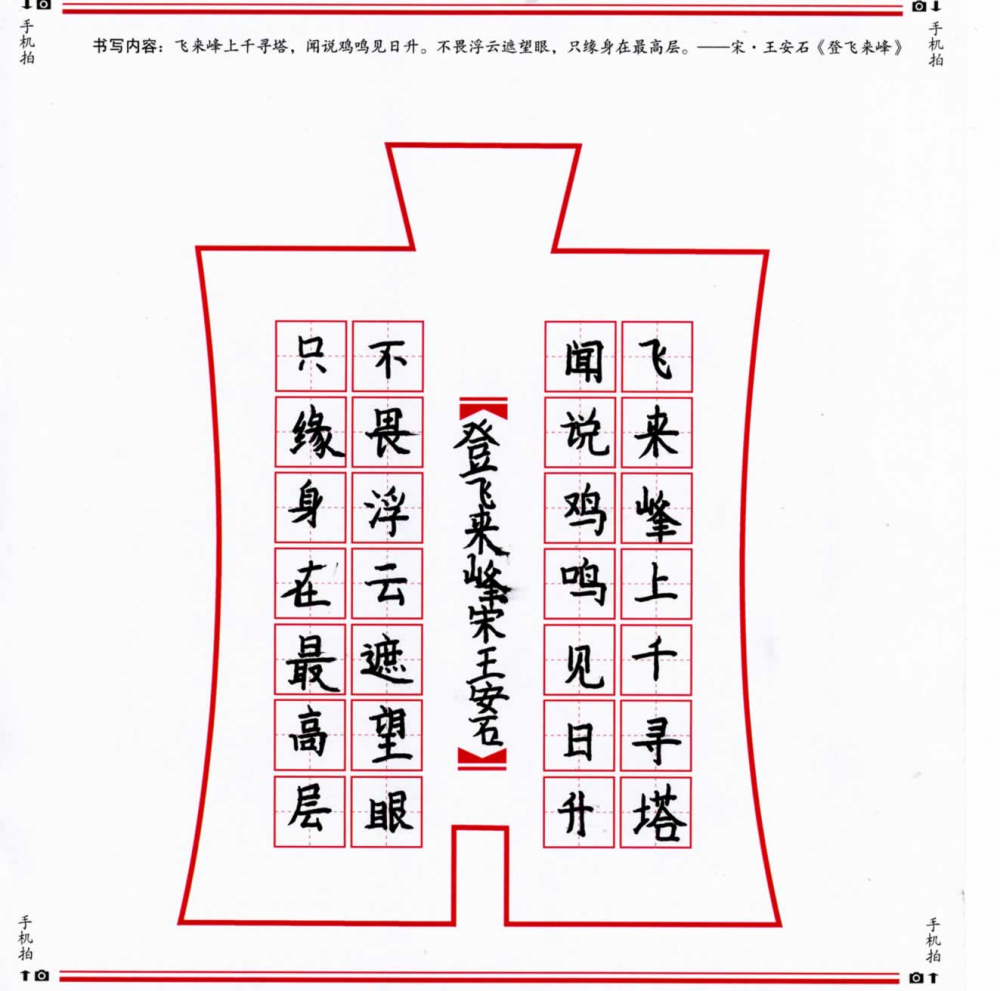 手机拍
手机拍
书写内容：飞来峰上千寻塔，闻说鸡鸣见日升。不畏浮云遮望眼，只缘身在最高层。——宋·王安石《登飞来峰》
飞来峰上千寻塔
闻说鸡鸣见日升
登飞来峰宋王安石
不畏浮云遮望眼
只缘身在最高层
手机拍
手机拍